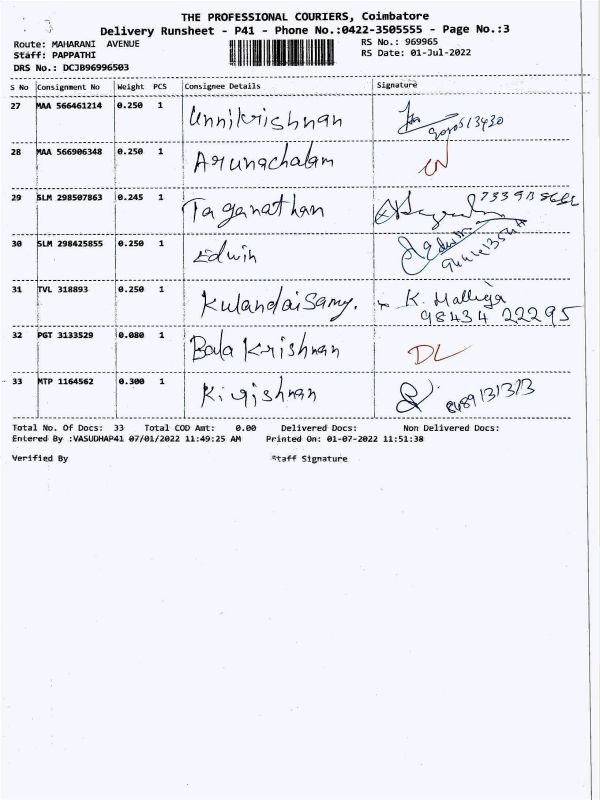 THE PROFESSIONAL COURIERS, Coimbatore
Delivery Runsheet - P41 - Phone No.:0422-3505555 - Page No.:3
Route: MAHARANI AVENUE RS No.: 969965
Staff: PAPPATHI RS Date: 01-Jul-2022
DRS No.: DCJB96996503
S No Consignment No Weight PCS Consignee Details Signature
27 MAA 566461214 0.250 1 Unnikrishnan
28 MAA 566906348 0.250 1 Arunachalam
29 SLM 298507863 0.245 1 Taganathan
30 SLM 298425855 0.250 1 Edwin
31 TVL 318893 0.250 1 Kulandaisamy. K. Malliga
98434 22295
32 PGT 3133529 0.080 1 Bala Krishnan DL
33 MTP 1164562 0.300 1 Kirishnan
Total No. Of Docs: 33 Total COD Amt: 0.00 Delivered Docs: Non Delivered Docs:
Entered By :VASUDHAP41 07/01/2022 11:49:25 AM Printed On: 01-07-2022 11:51:38
Verified By Staff Signature